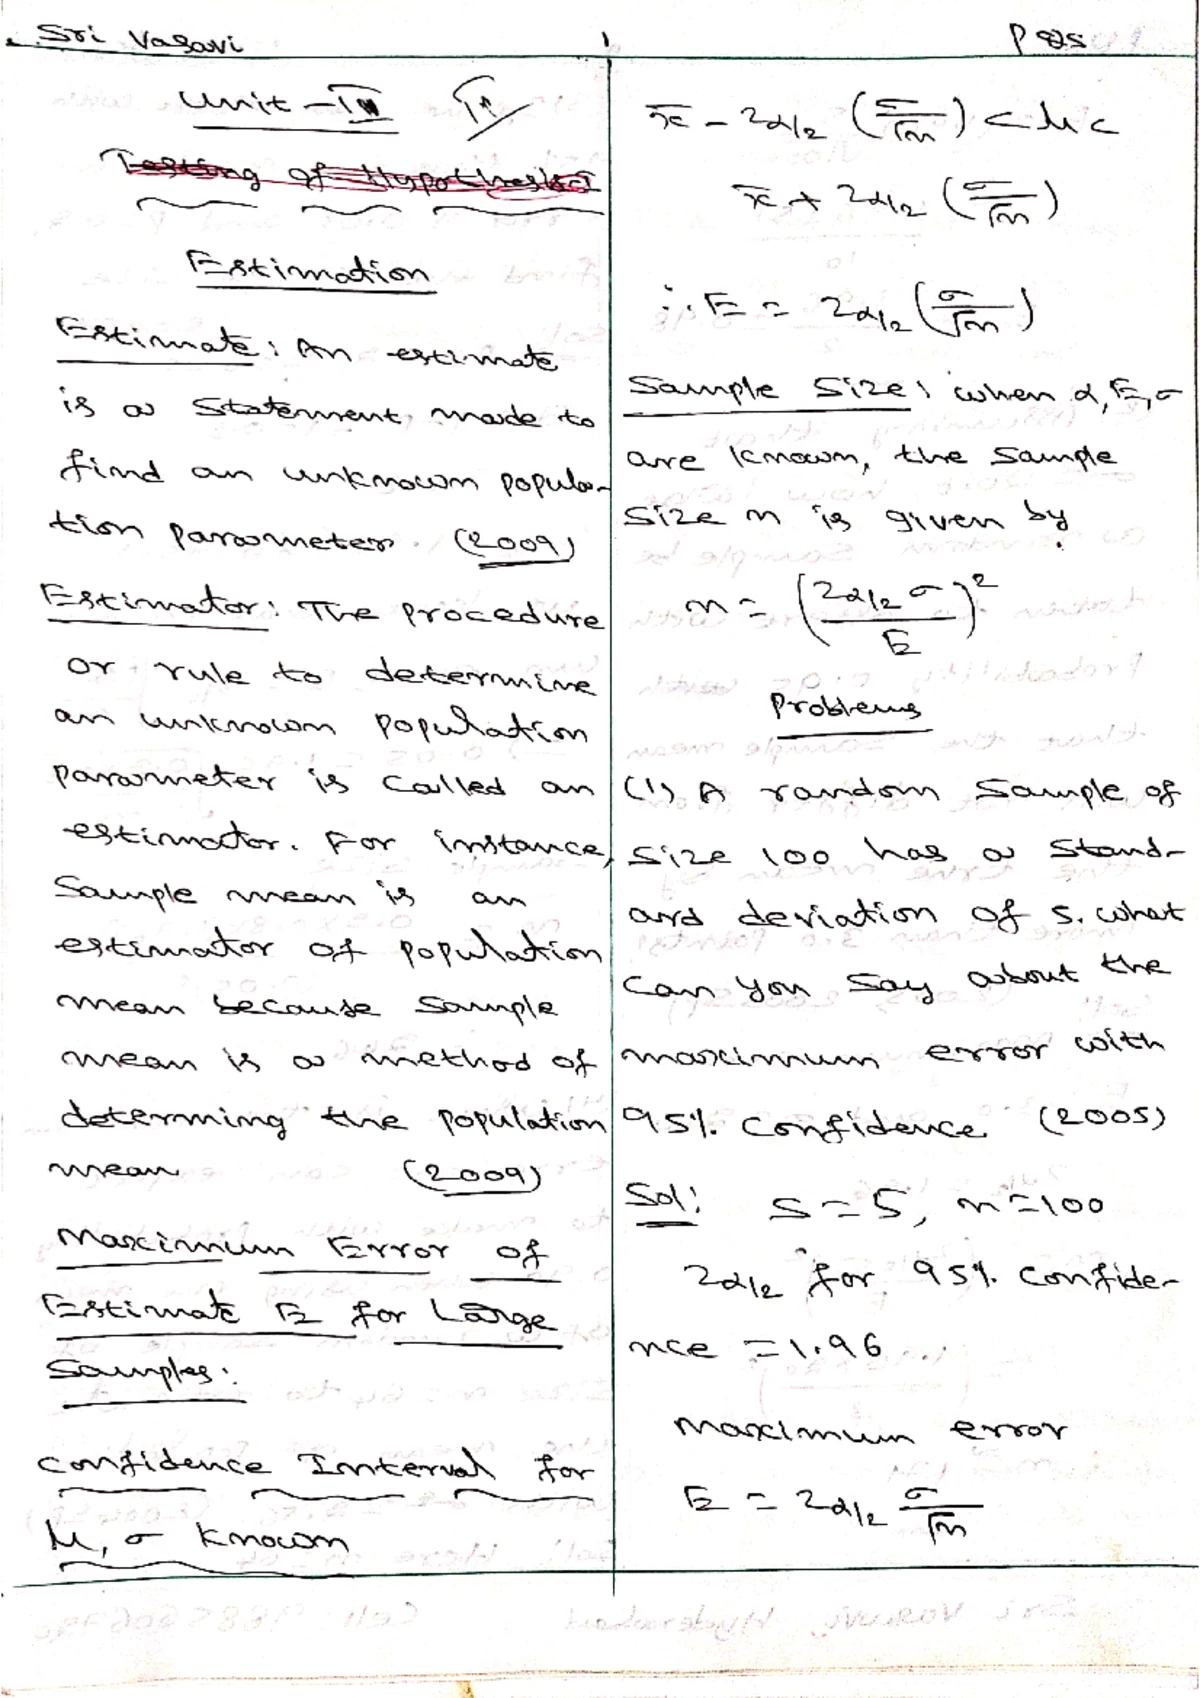 Sri Vasavi
1
P&S
Unit - III II
Testing of Hypothesis
Estimation
Estimate: An estimate
is a Statement made to
find an unknown popula-
tion parameter. (2009)
Estimator: The procedure
or rule to determine
an unknown population
parameter is called an
estimator. For instance,
Sample mean is an
estimator of population
mean because sample
mean is a method of
determing the population
mean (2009)
Maximum Error of
Estimate E for Large
Samples:
Confidence Interval for
μ, σ known
x̄ - Zα/2 (σ/√n) < μ <
x̄ + Zα/2 (σ/√n)
∴ E = Zα/2 (σ/√n)
Sample Size: when α, E, σ
are known, the sample
size n is given by
n = (Zα/2 σ / E)²
Problems
(1) A random sample of
size 100 has a stand-
ard deviation of 5. what
can you say about the
maximum error with
95% confidence (2005)
Sol: S = 5, n = 100
Zα/2 for 95% confide-
nce = 1.96
Maximum error
E = Zα/2 σ/√n